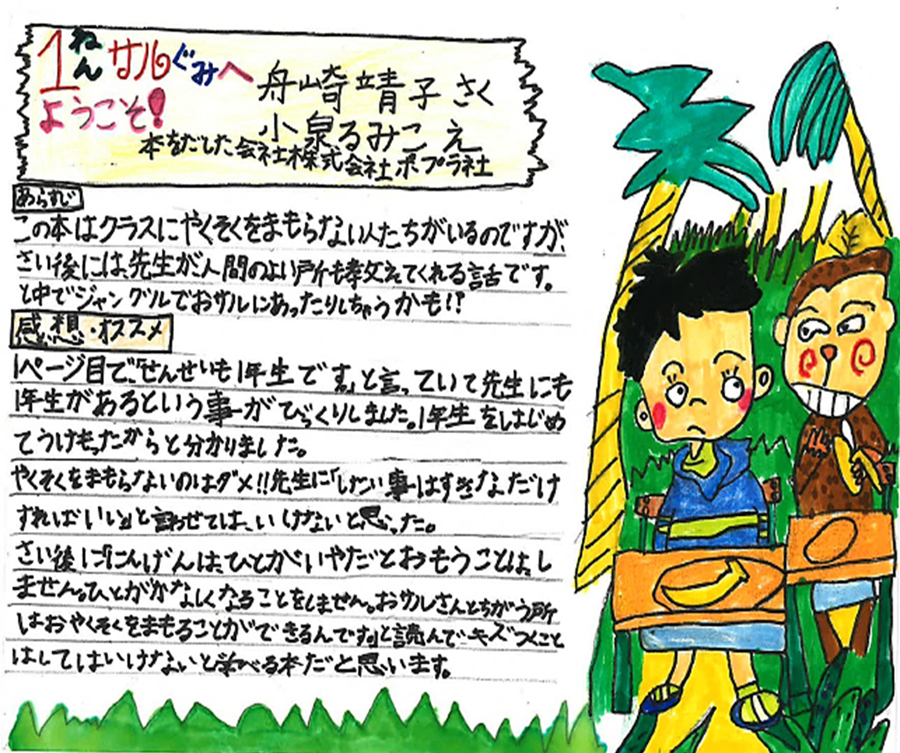 1ねんサルぐみへ
ようこそ!
舟崎靖子 さく
小泉るみこ え
本をだした会社株式会社ポプラ社
あらすじ
この本はクラスにやくそくをまもらない人たちがいるのですが、
さい後には、先生が人間のよい所も教えてくれる話です。
と中でジャングルでおサルにあったりしちゃうかも!?
感想・オススメ
1ページ目で、「せんせいも1年生です。」と言っていて先生にも
1年生があるという事がびっくりしました。1年生をはじめ
てうけもったからと分かりました。
やくそくをまもらないのはダメ!!先生に「したい事はすきなだけ
すればいい」と言わせては、いけないと思った。
さい後に「にんげんは、ひとがいやだとおもうことは、し
ません。ひとがかなしくなることをしません。おサルさんとちがう所
はおやくそくをまもることができるんです。」と読んで、キズつくこと
はしてはいけないと学べる本だと思います。